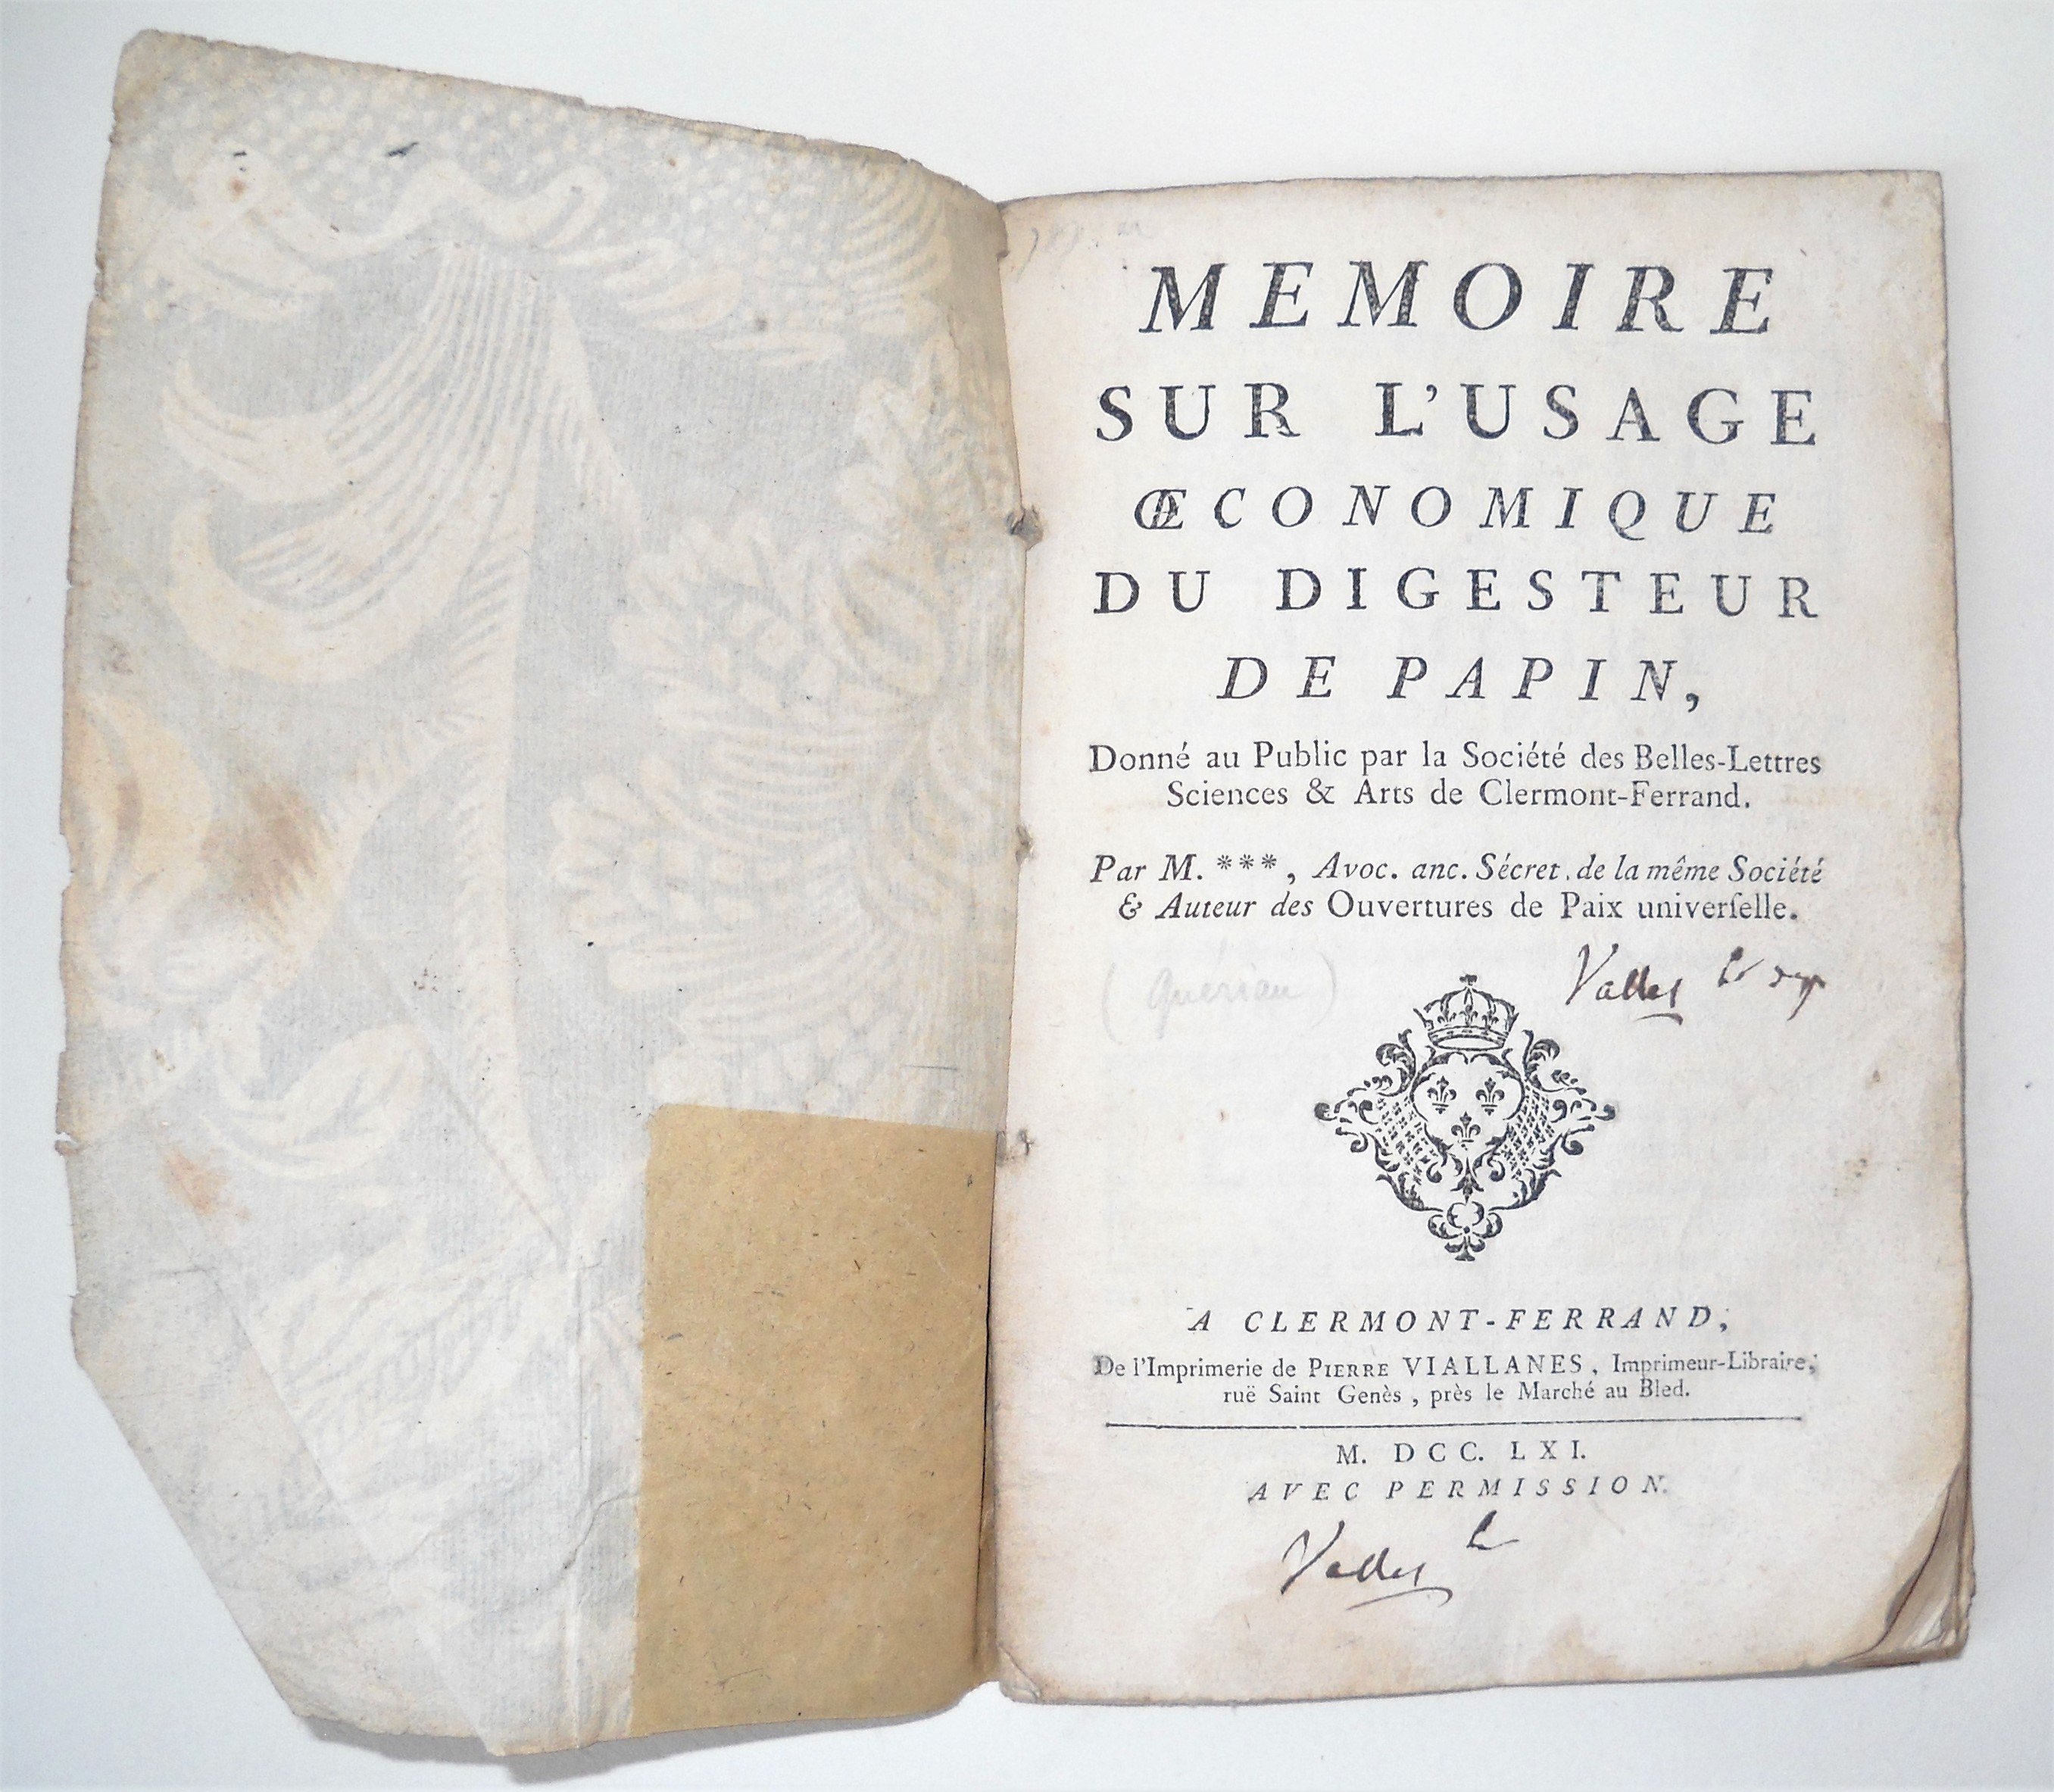 MEMOIRE
SUR L'USAGE
ŒCONOMIQUE
DU DIGESTEUR
DE PAPIN,
Donné au Public par la Société des Belles-Lettres
Sciences & Arts de Clermont-Ferrand.
Par M. ***, Avoc. anc. Sécret. de la même Société
& Auteur des Ouvertures de Paix univerſelle.
(Quériau)
A CLERMONT-FERRAND,
De l'Imprimerie de PIERRE VIALLANES, Imprimeur-Libraire,
ruë Saint Genès, près le Marché au Bled.
M. DCC. LXI.
AVEC PERMISSION.